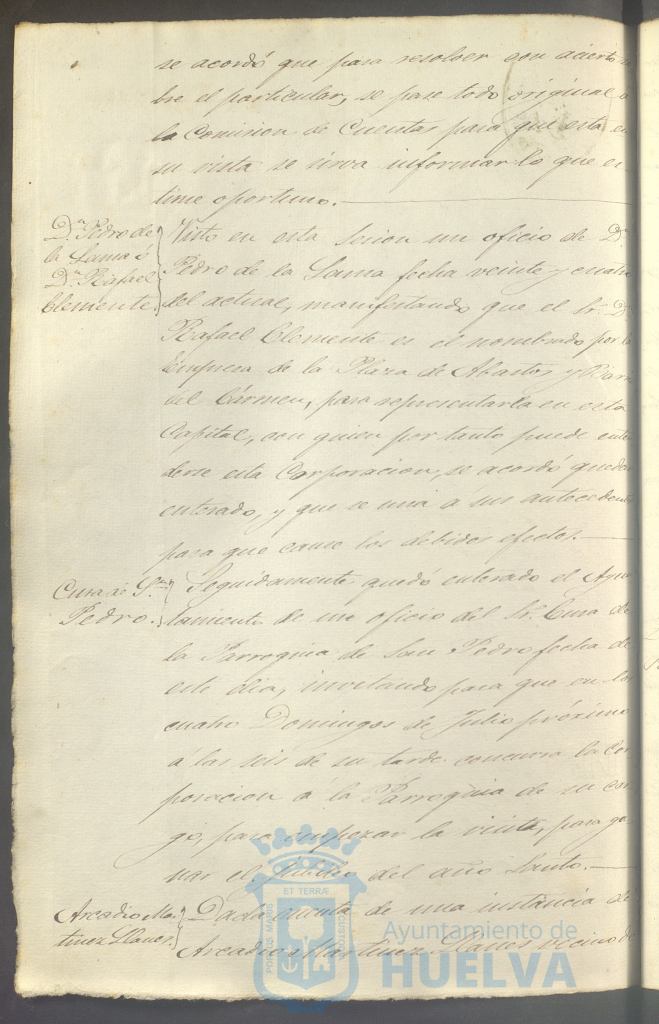 se acordó que para resolver con acierto so
bre el particular, se pase todo original a
la Comision de Cuentas para que esta en
su vista se sirva informar lo que es
time oportuno.
Dn. Pedro de
la Lama ó
Dn. Rafael
Clemente.
Visto en esta sesion un oficio de Dn.
Pedro de la Lama fecha veinte y cuatro
del actual, manifestando que el Sr. Dn.
Rafael Clemente es el nombrado por la
Empresa de la Plaza de Abastos y Barrio
del Cármen, para representarla en esta
Capital, con quien por tanto puede enten
derse esta Corporacion, se acordó quedar
enterado, y que se una a sus antecedentes
para que cause los debidos efectos.
Cura de Sn.
Pedro.
Seguidamente quedó enterado el Ayun
tamiento de un oficio del Sr. Cura de
la Parroquia de San Pedro fecha de
este dia, invitando para que en los
cuatro Domingos de Julio próximo
á las seis de su tarde concurra la Cor
poracion á la Parroquia de su car
go, para empezar la visita, para ga
nar el Jubileo del año Santo.
Arcadio Mar
tinez Llanes.
Dada cuenta de una instancia de
Arcadio Martinez Llanes vecino de
ET TERRÆ
PORTUS MARIS
CUSTODIA
Ayuntamiento de
HUELVA